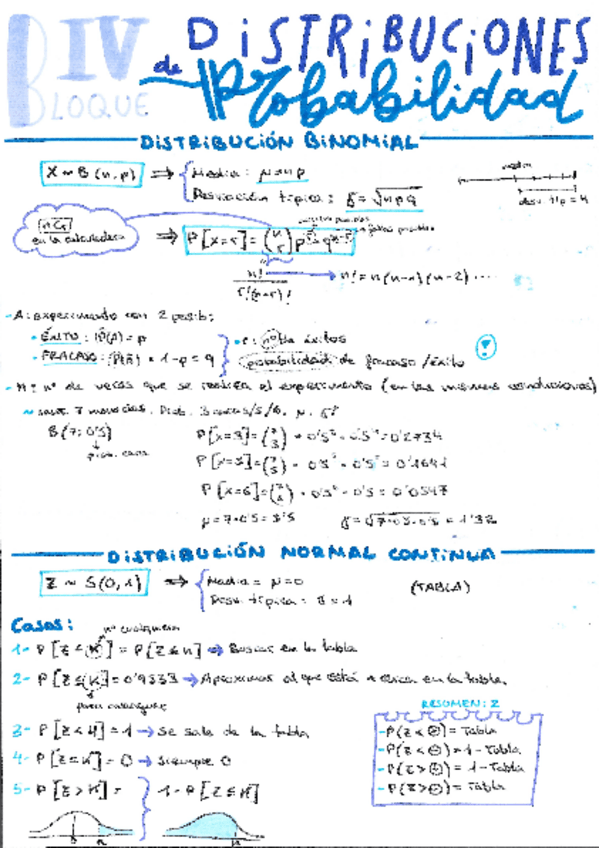 BLOQUE IV DISTRIBUCIONES
de Probabilidad
DISTRIBUCIÓN BINOMIAL
X ~ B(n,p) ⇒ Media: μ=np
Desviación típica: σ=√npq
media
desv. típ = σ
nCr
en la calculadora ⇒ P[X=r]=(n r) p^r · q^n-r
n!/r!(n-r)! → n! = n(n-1)(n-2)....
- A: experimento con 2 posib:
• ÉXITO: P(A)=p
• FRACASO: P(Ā)=1-p=q
• r: nº de éxitos
probabilidad de fracaso/éxito
- n: nº de veces que se realiza el experimento (en las mismas condiciones)
~ 7 monedas. Prob. 3 caras/5/6. μ. σ
B(7; 0'5)
prob. cara
P[X=3]=(7 3) · 0'5³ · 0'5⁴=0'2734
P[X=5]=(7 5) · 0'5⁵ · 0'5²=0'1641
P[X=6]=(7 6) · 0'5⁶ · 0'5=0'0547
μ=7·0'5=3'5 σ=√7·0'5·0'5=1'32
DISTRIBUCIÓN NORMAL CONTINUA
Z ~ S(0,1) ⇒ Media = μ=0
Desv. típica: σ=1
(TABLA)
Casos:
nº cualquiera
1- P[Z≤K] = P[Z≤K] → Buscar en la tabla
2- P[Z≤K]=0'9333 → Aproximar al que está más cerca en la tabla.
3- P[Z<4]=1 → Se sale de la tabla
4- P[Z=K]=0 → Siempre 0
5- P[Z>K]= 1-P[Z≤K]
RESUMEN: Z
- P(Z<⊕)=Tabla
- P(Z<⊖)=1-Tabla
- P(Z>⊕)=1-Tabla
- P(Z>⊖)=Tabla